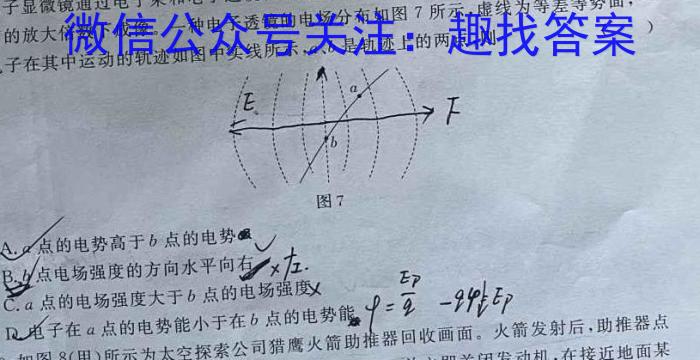 子显微镜通过电子束和电子透
微信公众号关注：趣找答案
的电场分布如图7所示,虚线为等差等势面,
子在其中运动的轨迹如图中实线所示
是轨迹上的两
)
E
a
F
b
图7
A.a点的电势高于b点的电势
B.b点电场强度的方向水平向右
×
左.
C.a点的电场强度大于b点的电场强度
×
D.电子在a点的电势能小于在b点的电势能
φ=Ep/q
-qφ
Ep
如图8(甲)所示为太空探索公司猎鹰火箭助推器回收画面。火箭发射后,助推器点
即关闭发动机,在接近地面某